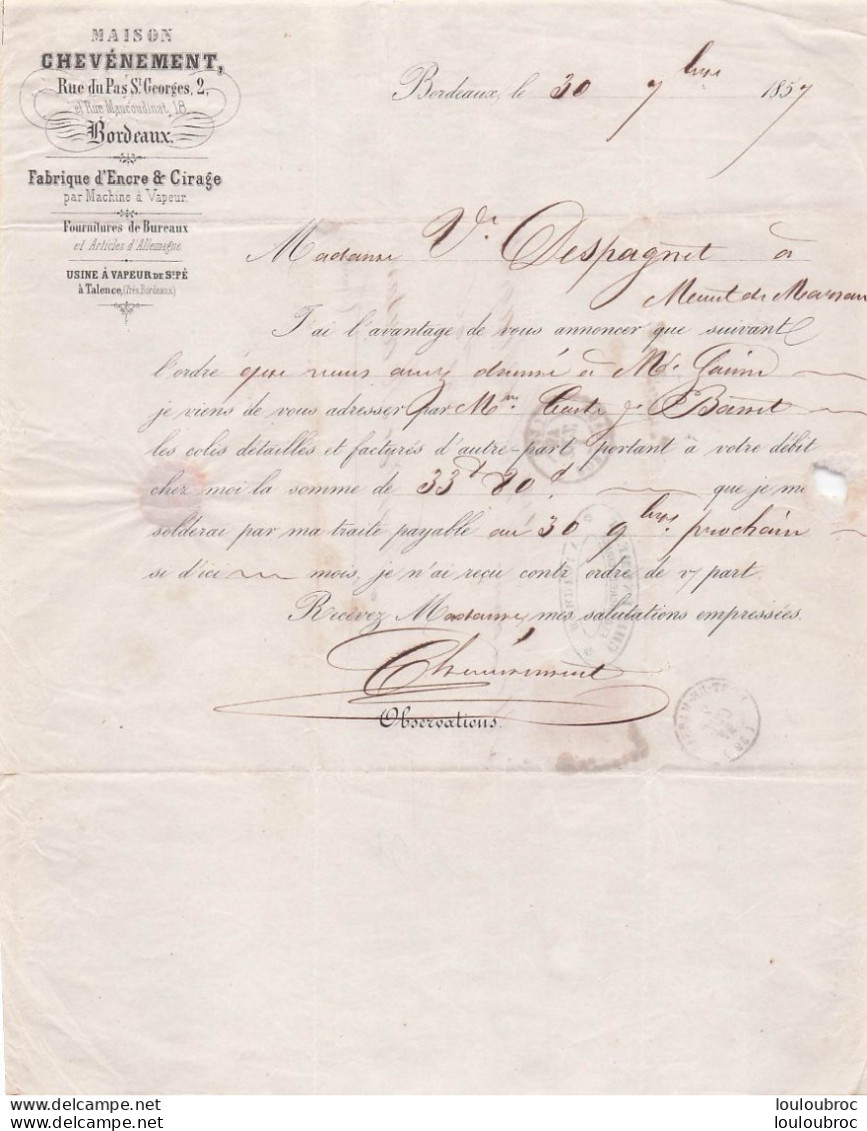 MAISON
CHEVÉNEMENT,
Rue du Pas St Georges, 2,
et Rue Maucoudinat, 18
Bordeaux.
Fabrique d'Encre & Cirage
par Machine à Vapeur.
Fournitures de Bureaux
et Articles d'Allemagne
USINE À VAPEUR DE St PÉ
à Talence, (Près Bordeaux)
Bordeaux, le 30 7bre 1857
Madame Ve Despagnet à
Mont de Marsan
J'ai l'avantage de vous annoncer que suivant
l'ordre que vous avez donné à Mr
je viens de vous adresser par Mrs
les colis détaillés et facturés d'autre-part portant à votre débit
chez moi la somme de 33f 80 que je me
solderai par ma traite payable au 30 9bre prochain
si d'ici mois, je n'ai reçu contr'ordre de v/ part.
Recevez Madame, mes salutations empressées.
Chevénement
Observations.
delcampe.net
louloubroc
delcampe.net
louloubroc